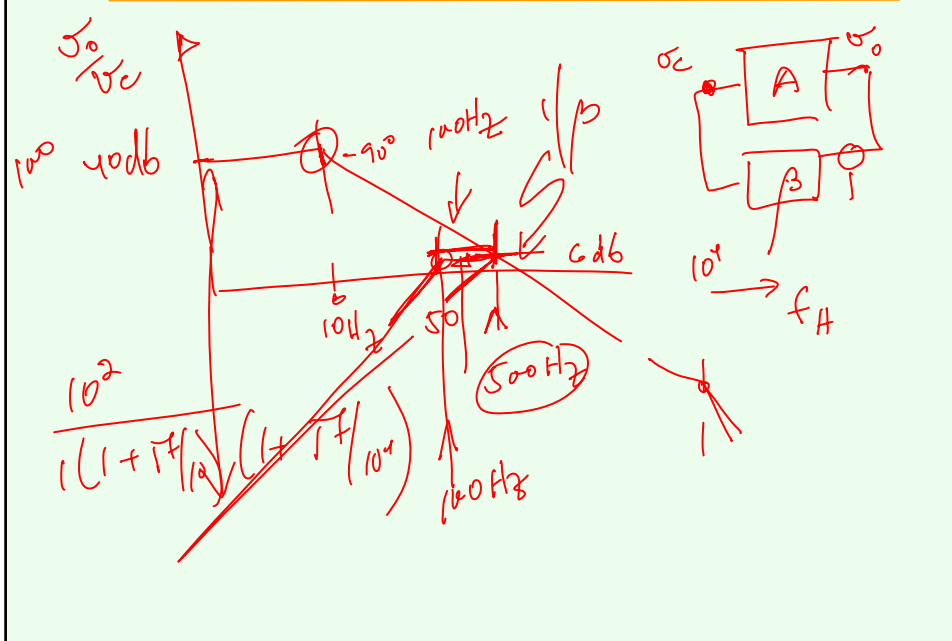 vo
/vc
100 40db
-90°
100Hz
1/β
vc
A
vo
β
1
6db
10⁴
fH
10Hz
50
500Hz
10²
1(1 + jf/10)(1 + jf/10⁴)
100Hz